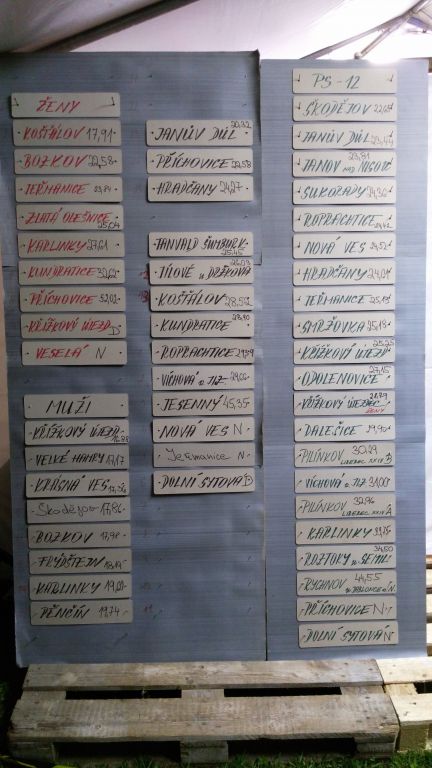 ŽENY
KOŠŤÁLOV 17,91
BOZKOV 22,58
JEŘMANICE
ZLATÁ OLEŠNICE
25,04
KARLINKY 27,61
KUNDRATICE 32,02
PŘÍCHOVICE 52,02
KŘÍŽKOVÝ ÚJEZD D
VESELÁ N
MUŽI
KŘÍŽKOVÝ ÚJEZD
16,88
VELKÉ HAMRY 17,17
KRÁSNÁ VES 17,36
Škodějov 17,86
BOZKOV 17,98
FRÝDŠTEJN 18,19
KARLINKY 19,00
PĚNČÍN 19,74
20,32
JANŮV DŮL
PŘÍCHOVICE 22,58
HRADČANY 24,27
TANVALD ŠUMBURK
25,45
26,03
JÍLOVÉ u DRŽKOVA
KOŠŤÁLOV 28,57
28,90
KUNDRATICE
ROPRACHTICE
VÍCHOVÁ n. JIZ.
JESENNÝ 45,35
NOVÁ VES N
Jeřmanice N
DOLNÍ SYTOVÁ D
PS - 12
ŠKODĚJOV 22,68
JANŮV DŮL 23,47
23,81
JANOV NAD NISOU
SUKORADY 24,36
ROPRACHTICE
24,42
NOVÁ VES 24,52
HRADČANY 24,91
JEŘMANICE
SMRŽOVKA 25,19
25,25
KŘÍŽKOVÝ ÚJEZD
27,15
ODOLENOVICE
KŘÍŽKOVÝ ÚJEZD
ŽENY
DALEŠICE 29,90
PILÍNKOV 30,19
LIBEREC XXIV B
VÍCHOVÁ n. JIZ 31,00
PILÍNKOV 32,96
LIBEREC XXIV A
KARLINKY
34,50
ROZTOKY u SEMIL
RYCHNOV 44,55
U JABLONCE n. N
PŘÍCHOVICE N
DOLNÍ SYTOVÁ N